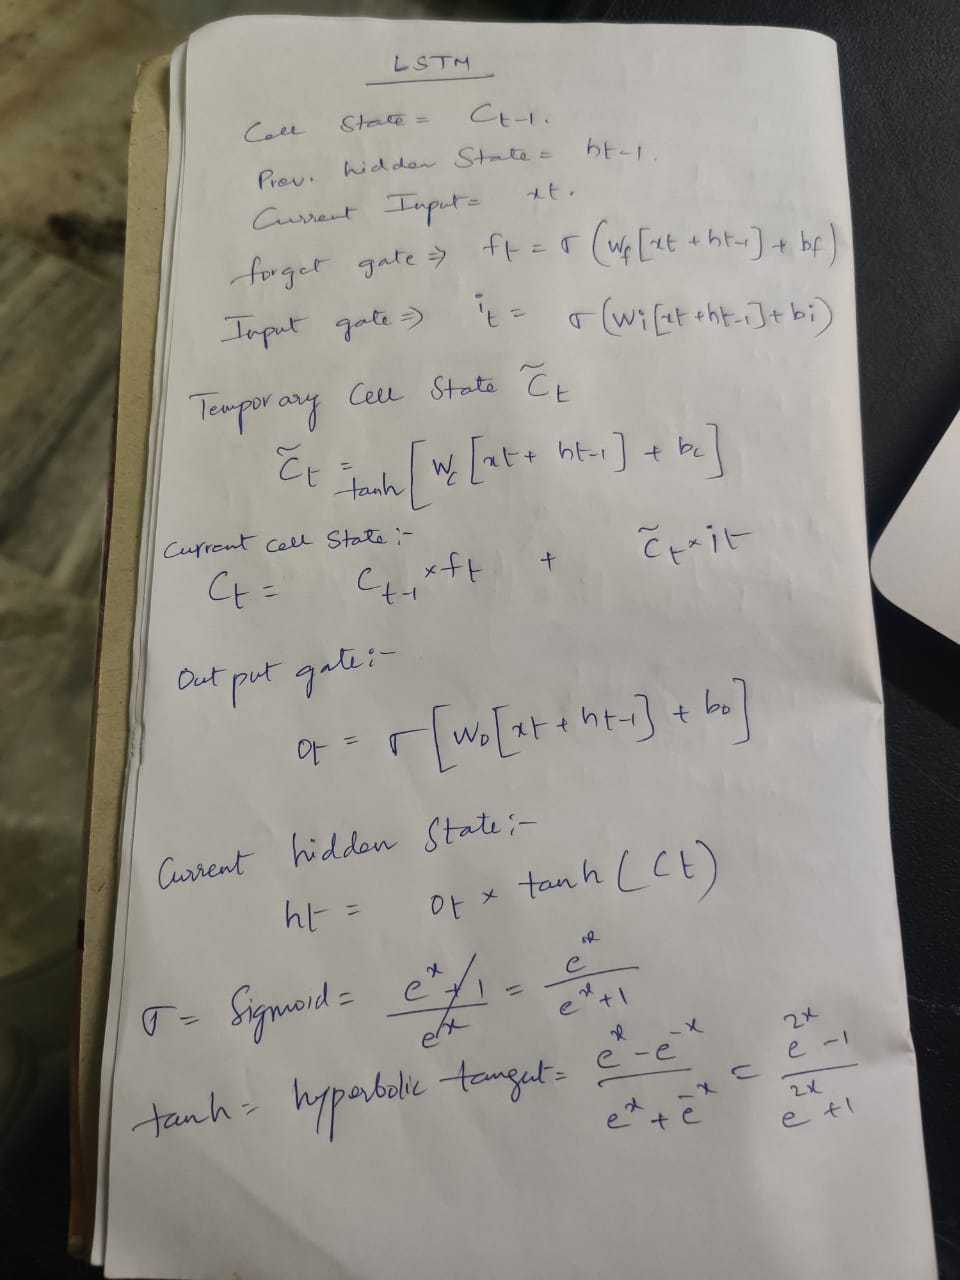 LSTM
Cell State = Ct-1.
Prev. hidden State = ht-1.
Current Input = xt.
forget gate ⇒ ft = σ (Wf [xt + ht-1] + bf)
Input gate ⇒ it = σ (Wi [xt + ht-1] + bi)
Temporary Cell State C̃t
C̃t = tanh [Wc [xt + ht-1] + bc]
Current cell State :-
Ct = Ct-1 × ft + C̃t × it
Output gate :-
ot = σ [Wo [xt + ht-1] + bo]
Current hidden State :-
ht = ot × tanh (Ct)
σ = Sigmoid = e^x + 1 / e^x = e^x / e^x + 1
tanh = hyperbolic tangut = e^x - e^-x / e^x + e^-x = e^2x - 1 / e^2x + 1